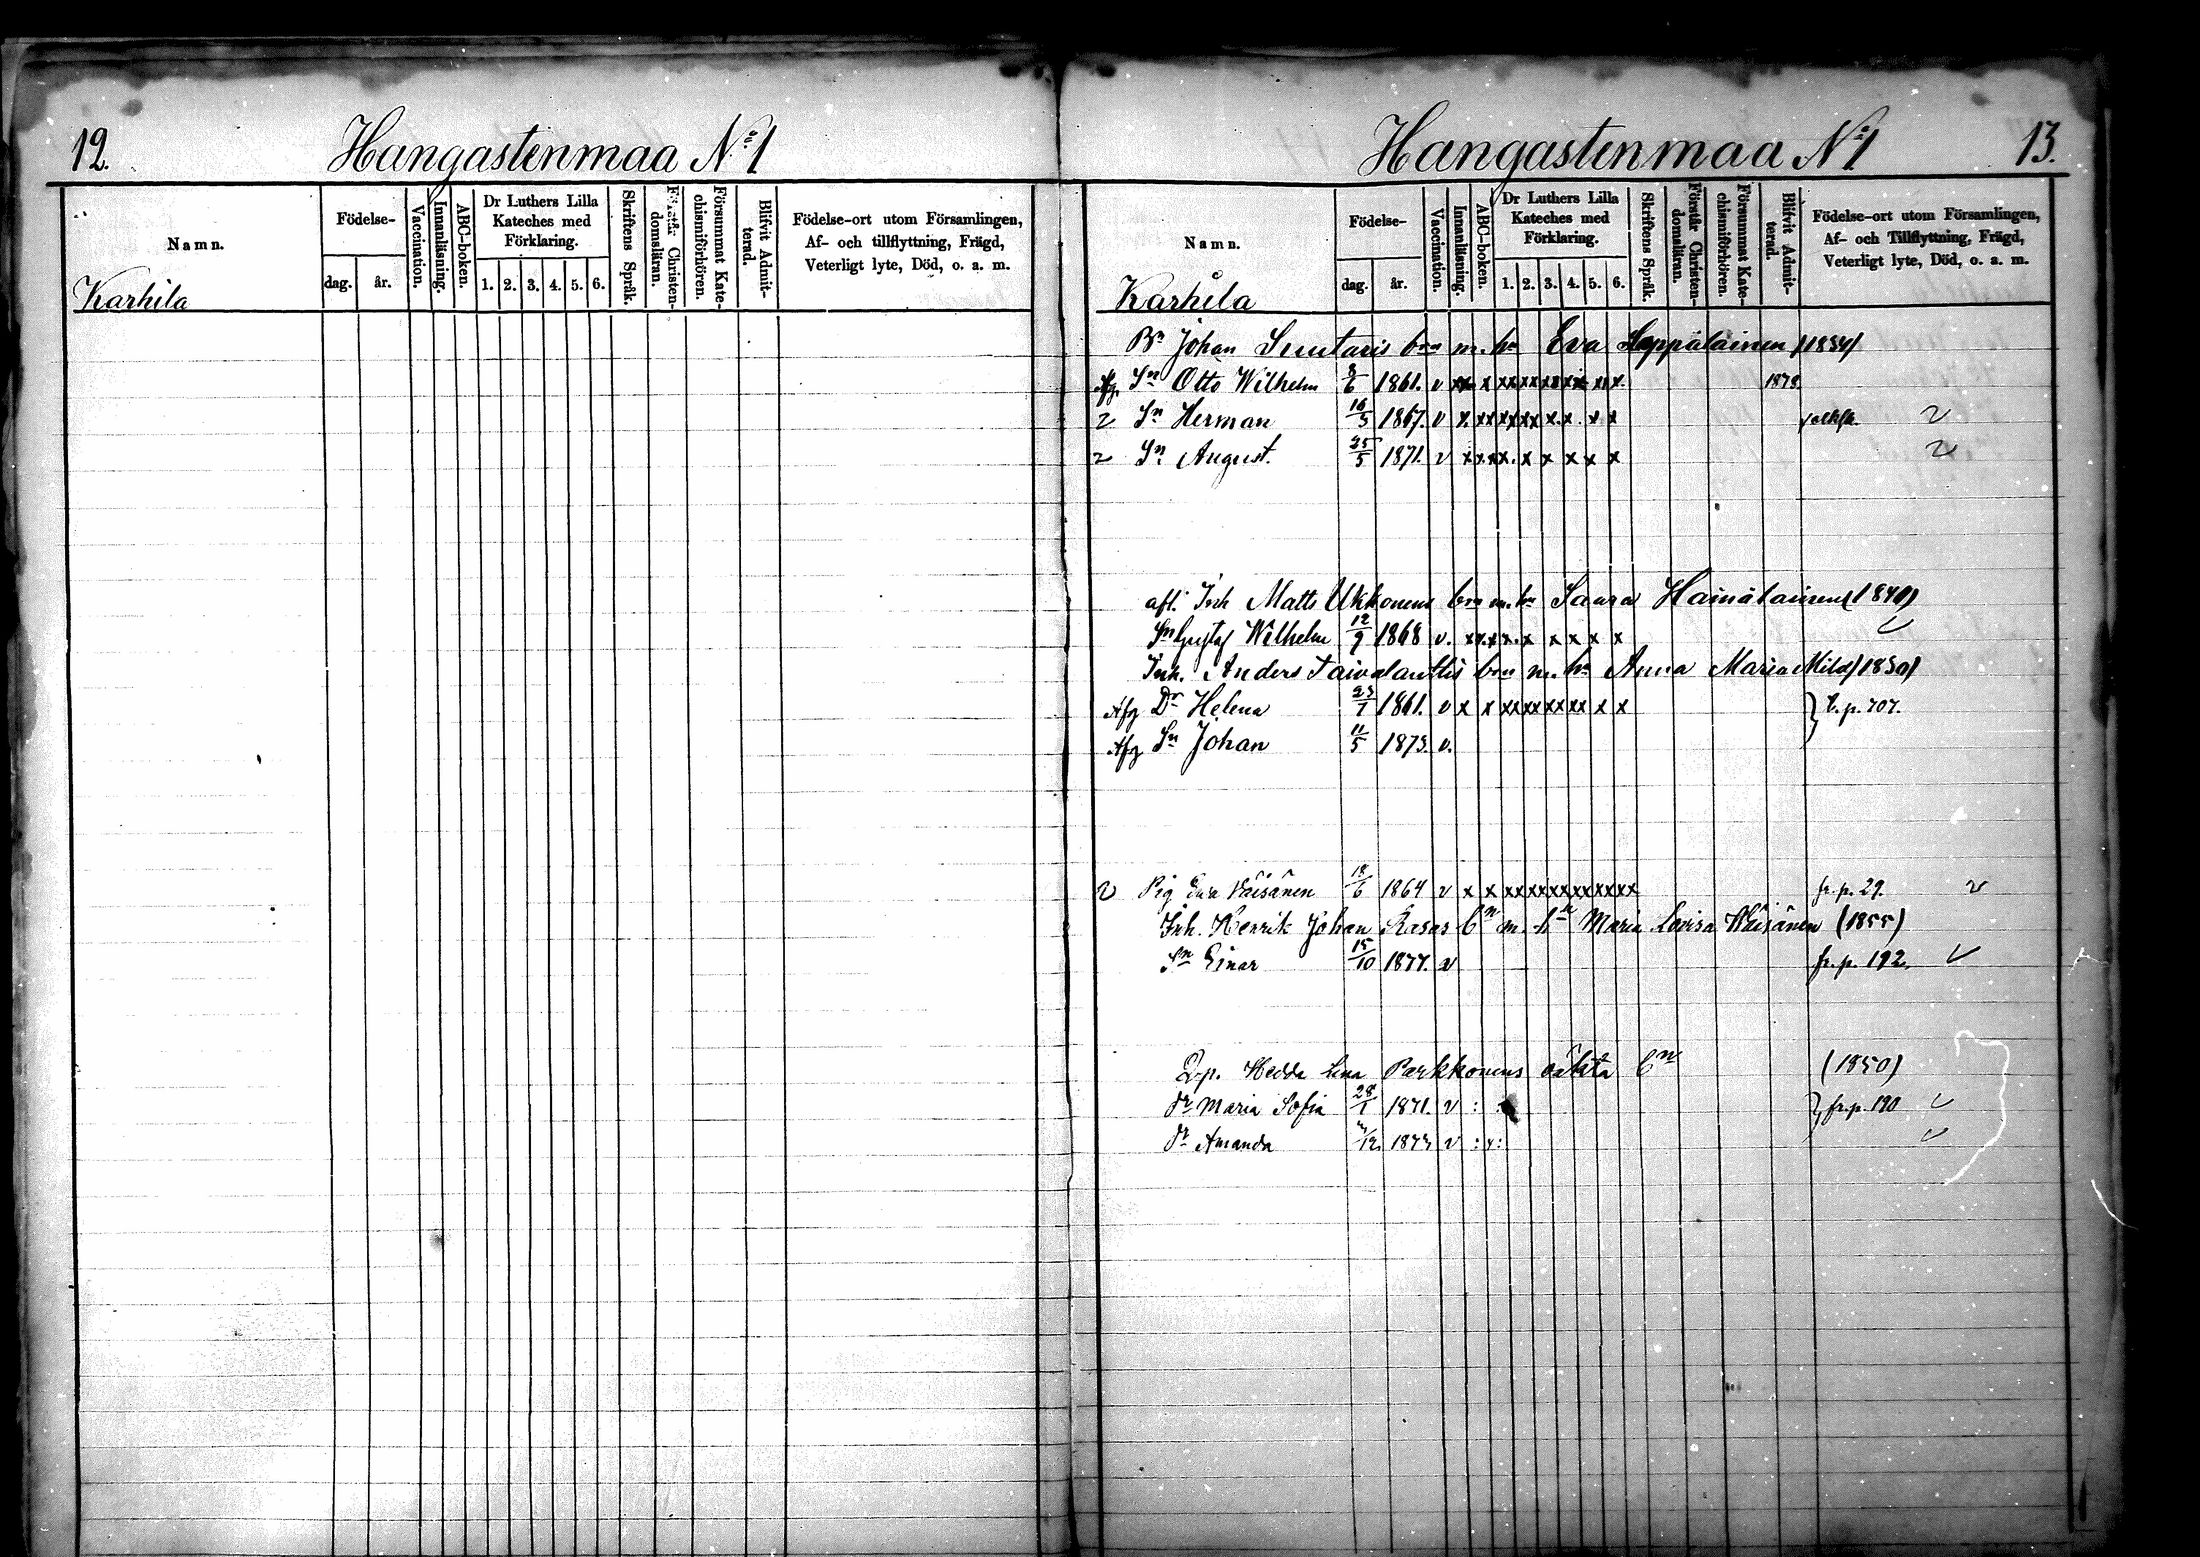 12.
Hangastenmaa No 1
Namn.
Födelse-
dag. år.
Vaccination.
Innanläsning.
ABC-boken.
Dr Luthers Lilla Kateches med Förklaring.
1. 2. 3. 4. 5. 6.
Skriftens Språk.
Förstår Christen-domsläran.
Försummat Kate-chismiförhören.
Blifvit Admit-terad.
Födelse-ort utom Församlingen,
Af- och tillflyttning, Frägd,
Veterligt lyte, Död, o. a. m.
Karhila
Hangastenmaa No 1
13.
Namn.
Födelse-
dag. år.
Vaccination.
Innanläsning.
ABC-boken.
Dr Luthers Lilla Kateches med Förklaring.
1. 2. 3. 4. 5. 6.
Skriftens Språk.
Förstår Christen-domsläran.
Försummat Kate-chismiförhören.
Blifvit Admit-terad.
Födelse-ort utom Församlingen,
Af- och Tillflyttning, Frägd,
Veterligt lyte, Död, o. a. m.
Karhila
Bn Johan bn m. hu Eva Seppäläinen (1834)
Sn Otto Wilhelm 8/6 1861. v xx x xx xx xx xx xx 1878.
Sn Herman 16/5 1867. v x. xx xx xx x. x. x x
Sn August. 25/5 1871. v x x x x. x x x x x
afl. Inh Matts Ukkonens bn m. hu Laura Hainälainen (1840)
Sn Gustaf Wilhelm 12/9 1868 v. x x. x x. x x x x x
Inh. Anders bn m. hu Anna Maria (1830)
Afg Dr Helena 23/1 1861. v x x xx xx xx xx x x } t. p. 707.
Afg Sn Johan 11/5 1873. v.
v Pig Eva Väisänen 18/6 1864 v x x xx xx xx xx xx xx fr. p. 29. v
Inh. Henrik Johan Kasas bn m. hu Maria Lovisa Väisänen (1855)
Sn Einar 15/10 1877. v fr. p. 192. v
Qvp. Hedda Lena Parkkonens oäkta bn (1850)
dr Maria Sofia 28/1 1871. v : } fr. p. 190 v
dr Amanda 1873 v : x: v